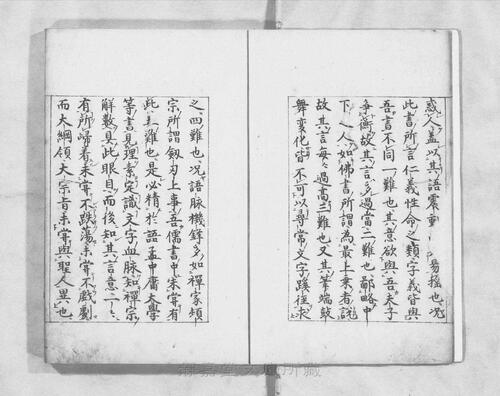 惑人蓋以其語震動 易搖也況
此書所言仁義性命之類字義皆與
吾書不同一難也其意欲與吾夫子
爭衡故其言多過當二難也鄙略中
下之人如佛書所謂為最上乘者說
故其言每每過高三難也又其筆端鼓
舞變化皆不可以尋常文字蹊徑求
之四難也況語脉機鋒多如禪家頓
宗所謂劔刃上事吾儒書中未嘗有
此五難也是必精於語孟中庸大學
等書見理素定識文字血脉知禪宗
解數具此眼目而後知其言意一一
有所歸著未嘗不跌蕩未嘗不戲劇
而大綱領大宗旨未嘗與聖人異也